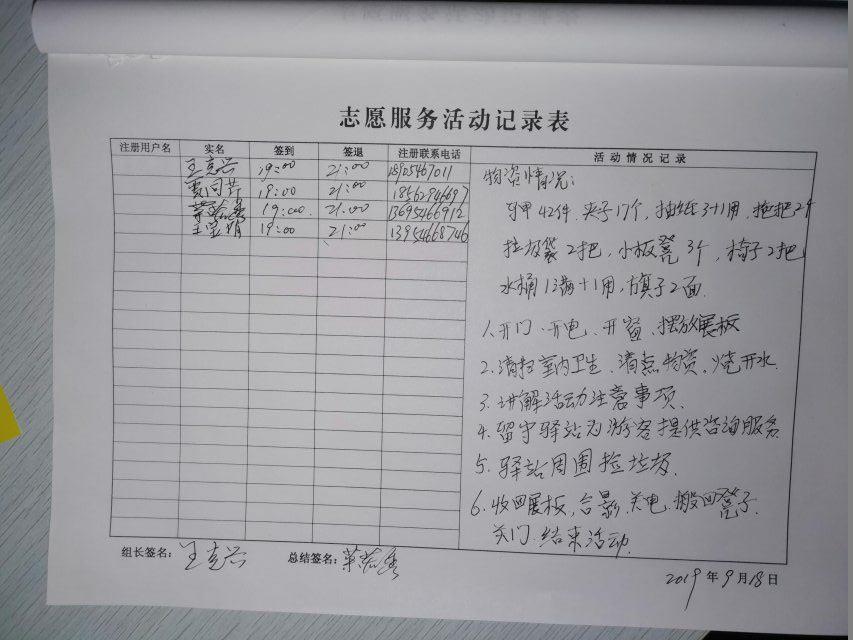 志愿服务活动记录表
注册用户名 实名 签到 签退 注册联系电话 活动情况记录
王克兴 19:00 21:00 18905467011
贾同芹 19:00 21:00 18562946697
19:00 21:00 13695466912
王宝娟 19:00 21:00 13954668746
物资情况:
马甲42件.夹子17个.抽纸3+1用.拖把2个
垃圾袋2把.小板凳3个,椅子2把
水桶13满+1用,旗子2面.
1.开门.开电.开窗.摆放展板
2.清扫室内卫生.清点物资.烧开水.
3.讲解活动注意事项.
4.留守驿站为游客提供咨询服务
5.驿站周围捡垃圾.
6.收回展板,合影.关电.搬回凳子.
关门.结束活动.
组长签名: 王克兴 总结签名:
2019年9月18日